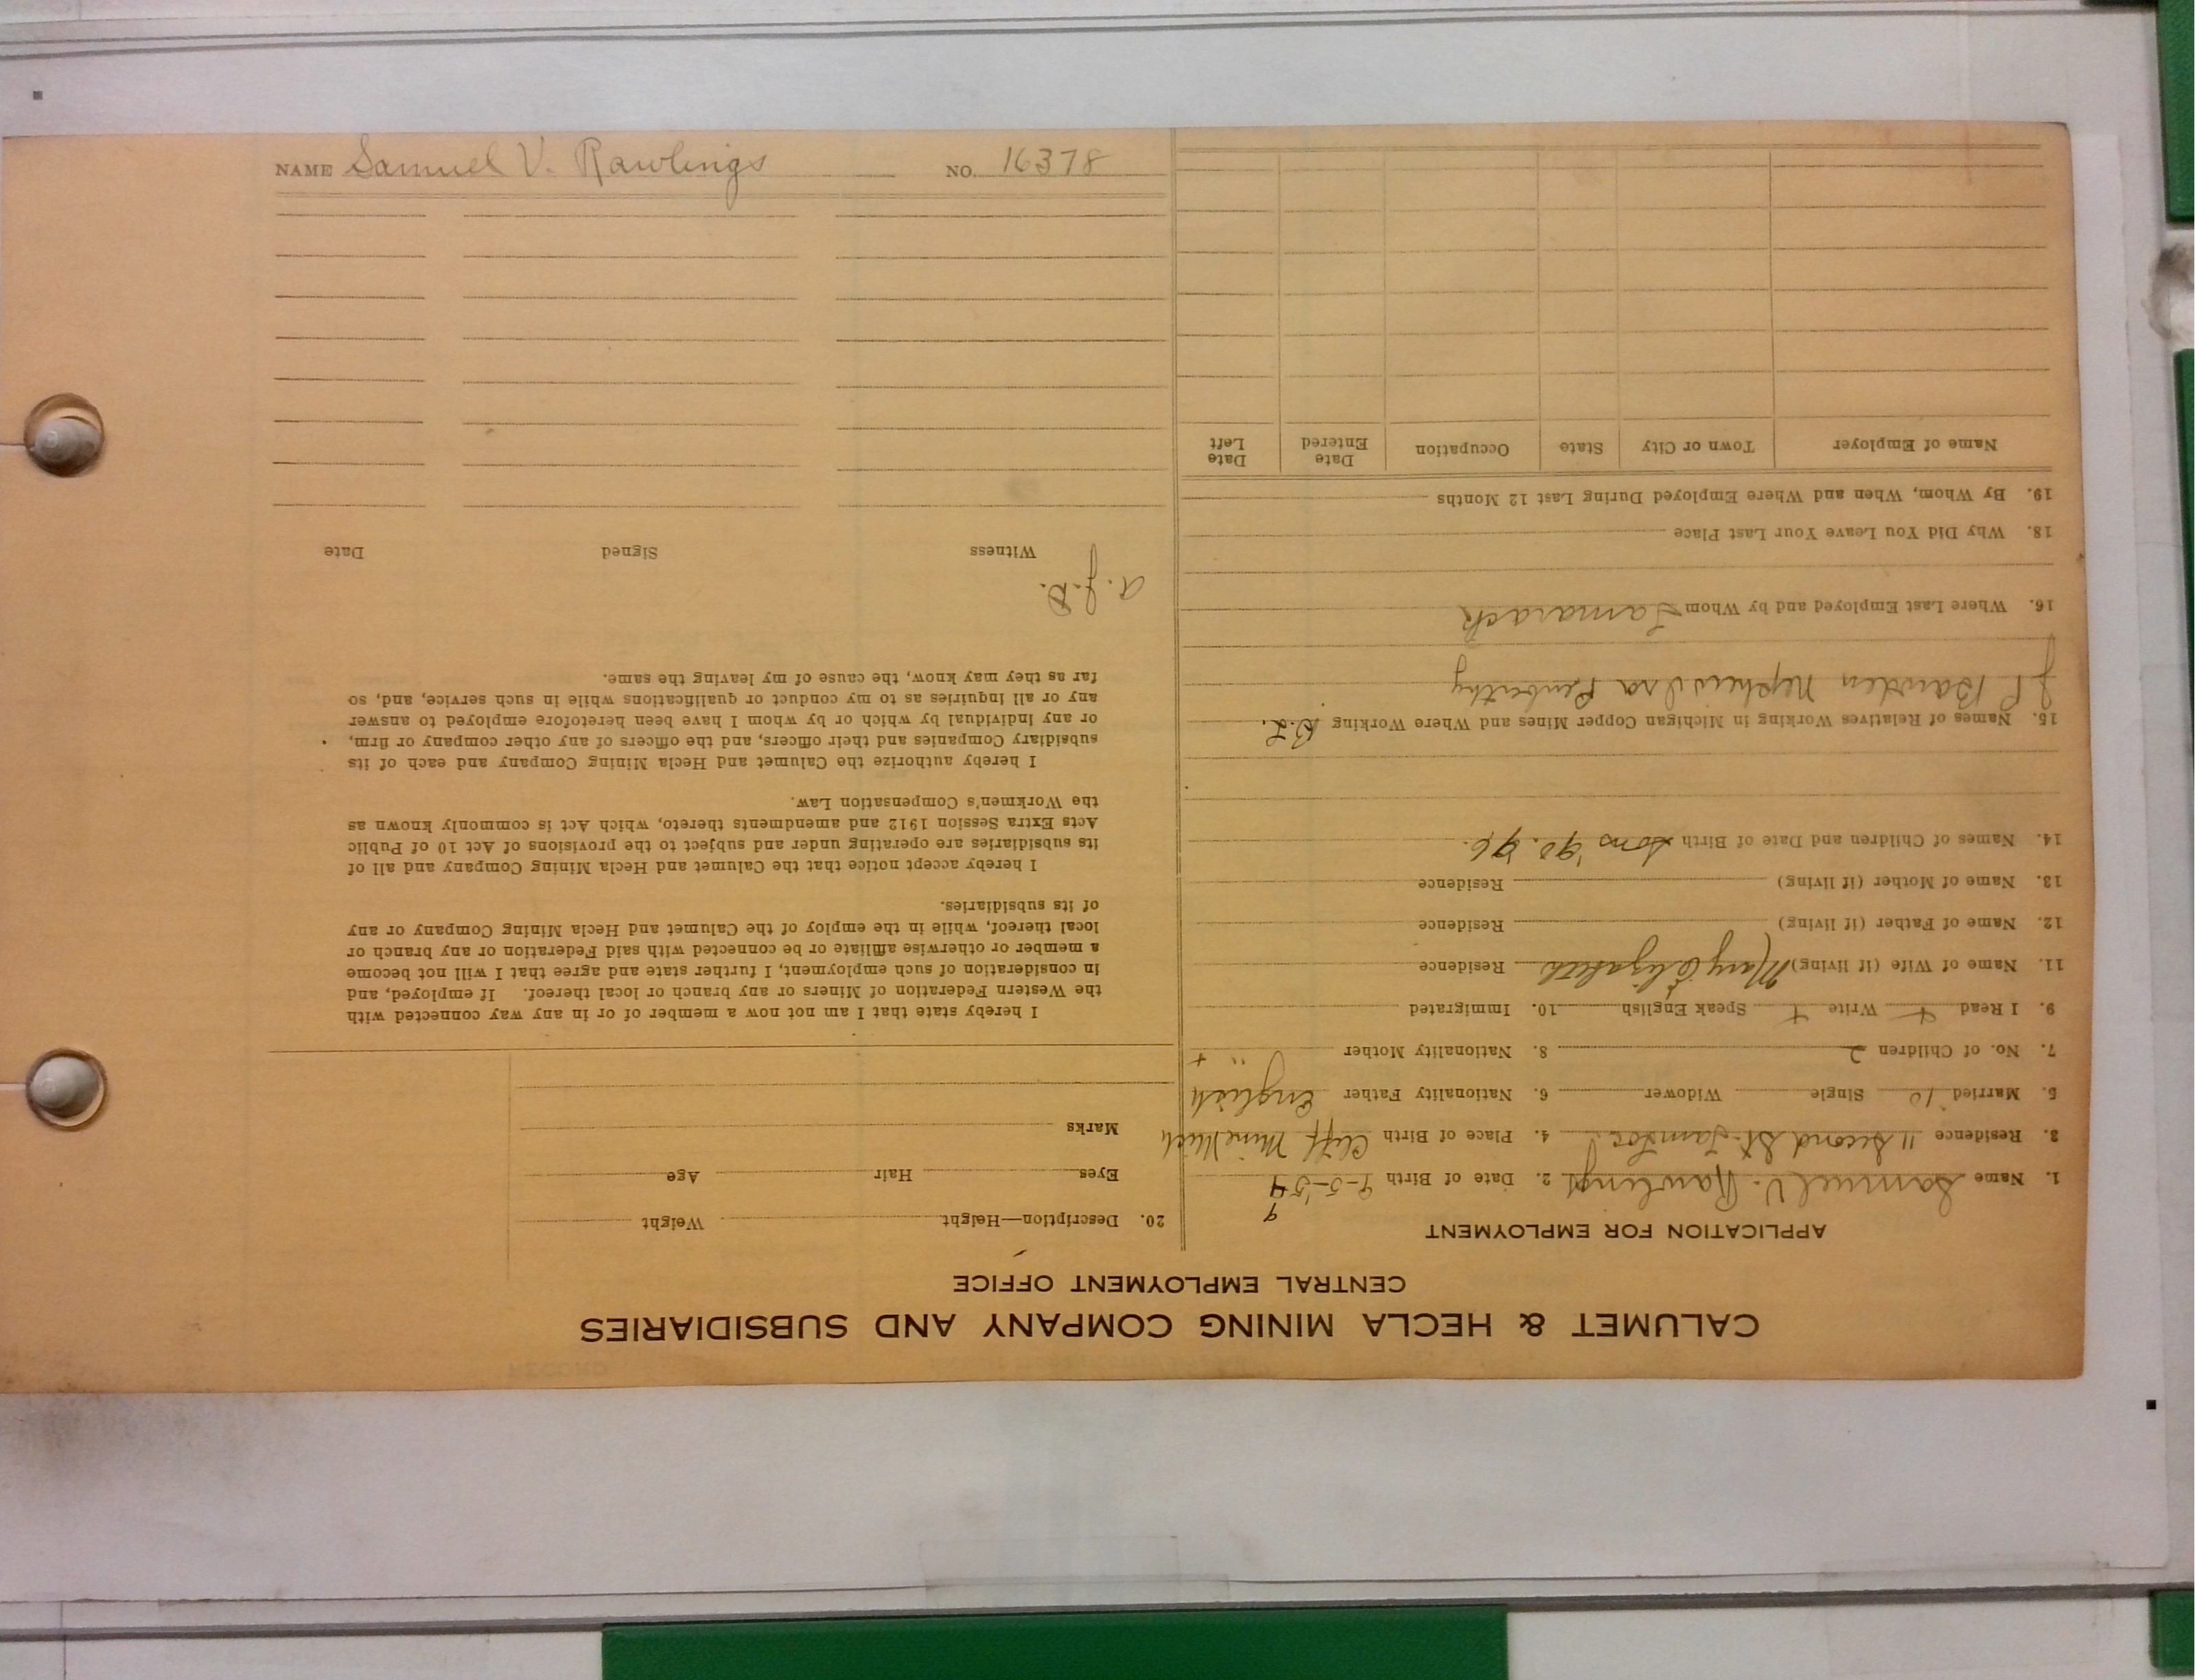 CALUMET & HECLA MINING COMPANY AND SUBSIDIARIES
CENTRAL EMPLOYMENT OFFICE
APPLICATION FOR EMPLOYMENT
1. Name Samuel V. Rawlings 2. Date of Birth 9-5-54 9
3. Residence 11 Second St. 4. Place of Birth Cliff Mine Mich
5. Married 10 Single Widower 6. Nationality Father English
7. No. of Children 2 8. Nationality Mother "
9. I Read + Write + Speak English 10. Immigrated
11. Name of Wife (if living) Mary Elizabeth Residence
12. Name of Father (if living) Residence
13. Name of Mother (if living) Residence
14. Names of Children and Date of Birth Sons 90. 96.
15. Names of Relatives Working in Michigan Copper Mines and Where Working
Bawden Nephew Ira Penberthy
16. Where Last Employed and by Whom Tamarack
18. Why Did You Leave Your Last Place
19. By Whom, When and Where Employed During Last 12 Months
Name of Employer Town or City State Occupation Date Entered Date Left
20. Description—Height Weight
Eyes Hair Age
Marks
I hereby state that I am not now a member of or in any way connected with
the Western Federation of Miners or any branch or local thereof. If employed, and
in consideration of such employment, I further state and agree that I will not become
a member or otherwise affiliate or be connected with said Federation or any branch or
local thereof, while in the employ of the Calumet and Hecla Mining Company or any
of its subsidiaries.
I hereby accept notice that the Calumet and Hecla Mining Company and all of
its subsidiaries are operating under and subject to the provisions of Act 10 of Public
Acts Extra Session 1912 and amendments thereto, which Act is commonly known as
the Workmen's Compensation Law.
I hereby authorize the Calumet and Hecla Mining Company and each of its
subsidiary Companies and their officers, and the officers of any other company or firm,
or any individual by which or by whom I have been heretofore employed to answer
any or all inquiries as to my conduct or qualifications while in such service, and, so
far as they may know, the cause of my leaving the same.
Witness Signed Date
NAME Samuel V. Rawlings NO. 16378